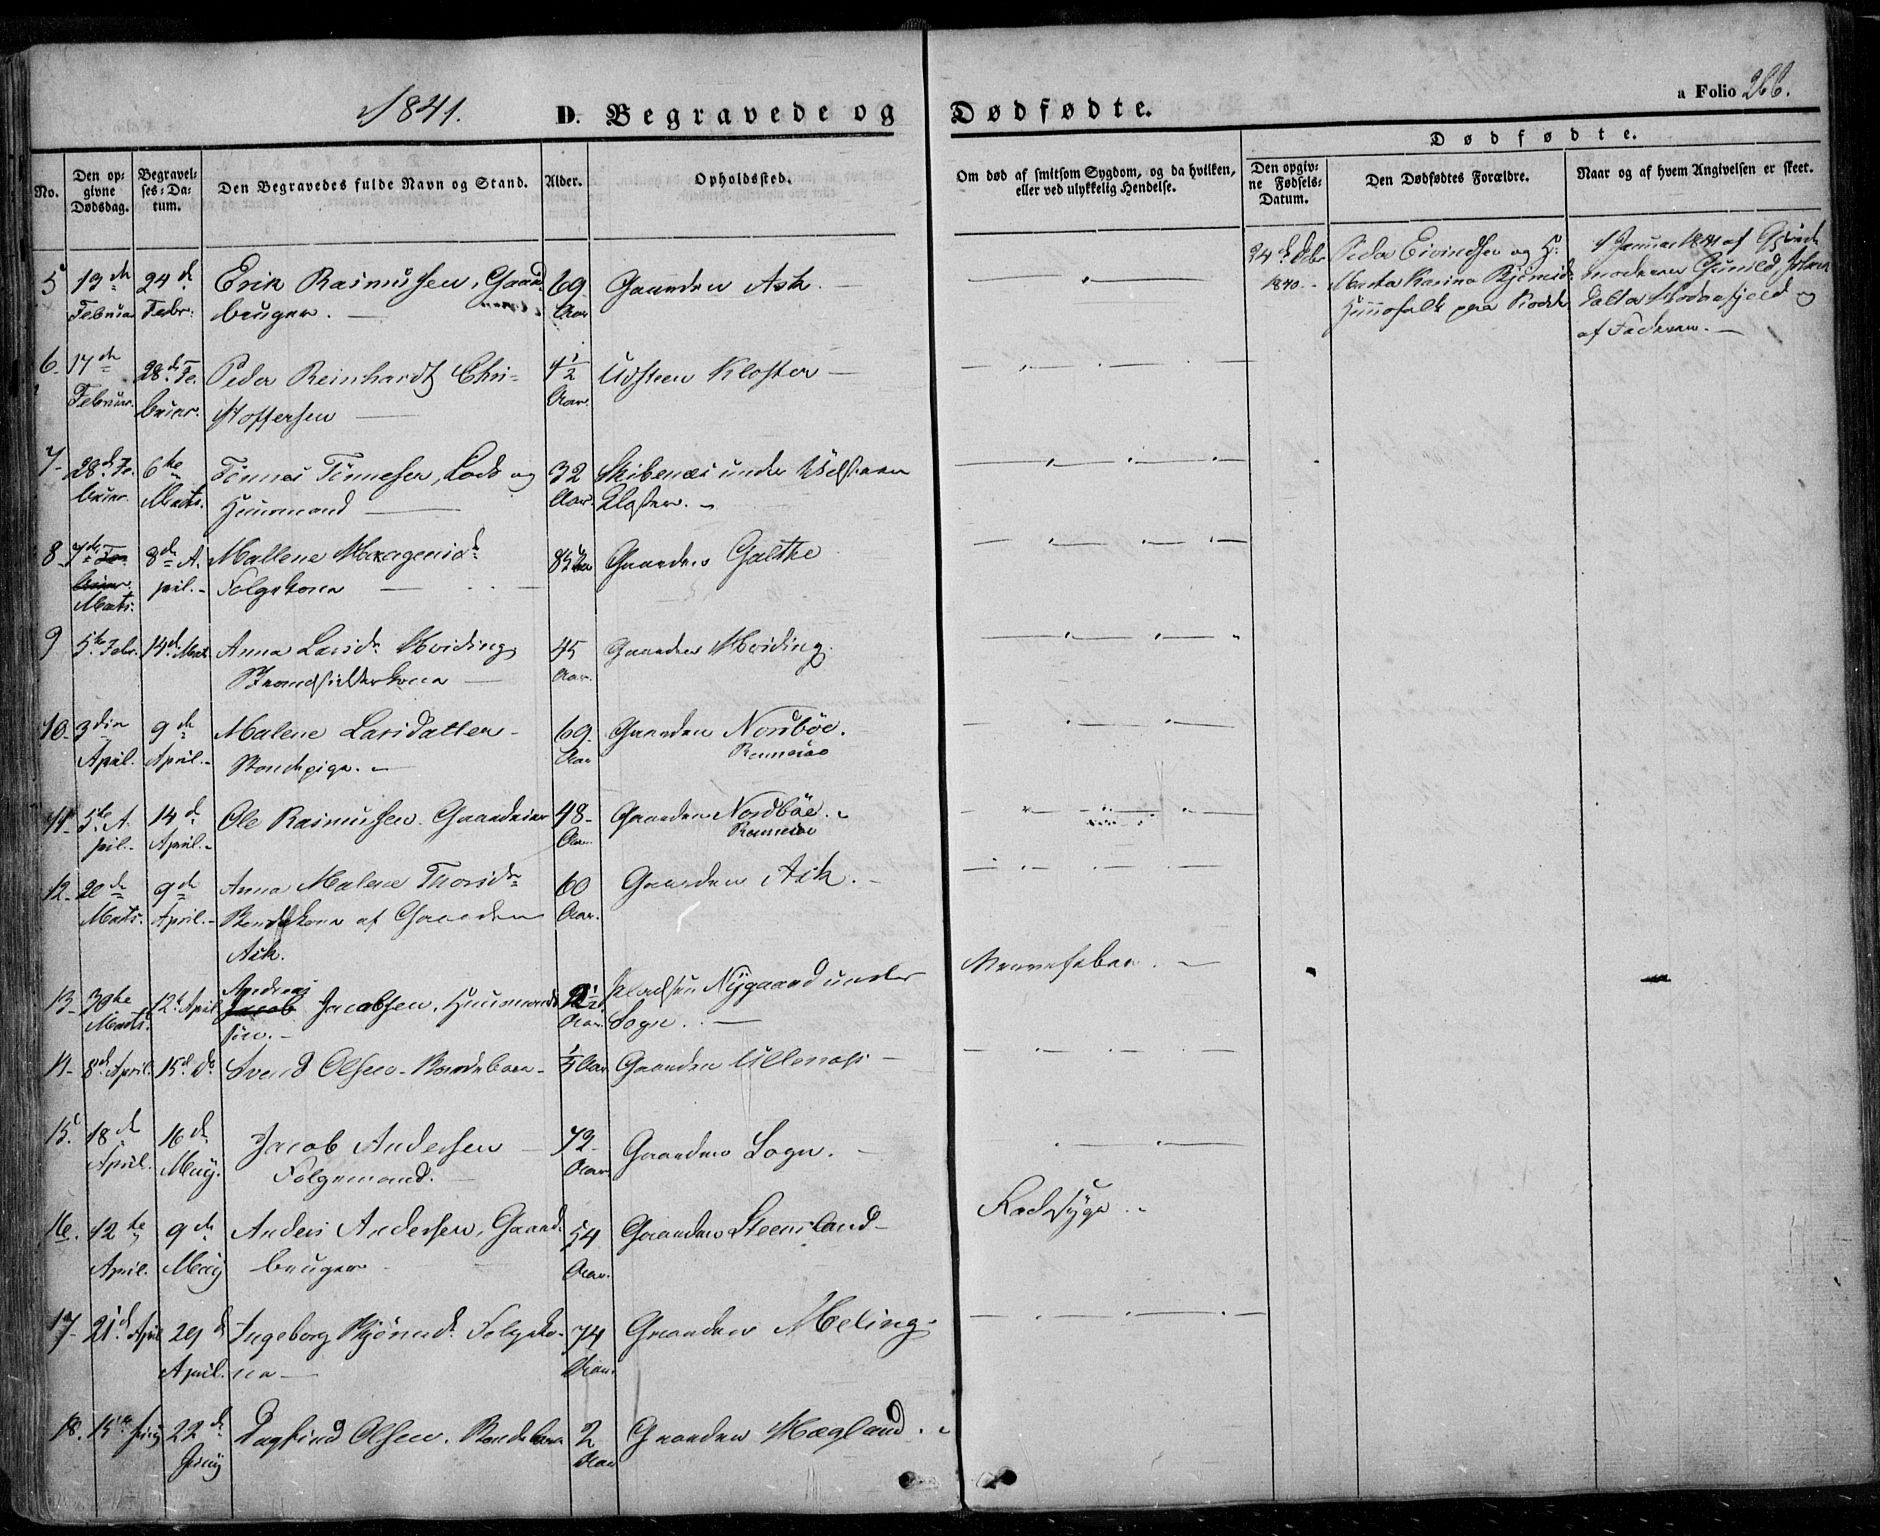 1841.
D. Begravede og Dødfødte.
a Folio 266.
No.
Den opgivne Dødsdag.
Begravelses-Datum.
Den Begravedes fulde Navn og Stand.
Alder.
Opholdssted.
Om død af smitsom Sygdom, og da hvilken,
eller ved ulykkelig Hendelse.
Dødfødte.
Den opgivne Fødsels-Datum.
Den Dødfødtes Forældre.
Naar og af hvem Angivelsen er skeet.
5 13de Februar 24de Febr: Erik Rasmussen, Gaardbruger. 69 Aar Gaarden Ask.
24de 1840. Peder Eivindsen og
af Faderen.
6. 17de Februar. 28de Februar. Peder Reinhardt Christoffersen 4½ Aar. Udsteen Kloster
7. 28de Februar. 6te Marts. Tönnes Tönnesen, Lods og Huusmand 32 Aar. under Udsteen Kloster.
8. 7de Februar. Marts. 8de April. Mallene Folgekone 85 Aar Gaarden Galthe
9 5te Febr. 14de Marts Anna Larsdr Hviding, 45 Aar. Gaarden Hviding.
10. 3die April. 9de April. Malene Larsdatter 69 Aar Gaarden Nordböe. Rennesöe
11. 5te April. 14de April. Ole Rasmussen Gaardeier 48 Aar. Gaarden Nordböe. Rennesöe
12. 20de Marts. 9de April. Anna Malene Thorsdr Bondekone af Gaarden Ask. 60 Aar. Gaarden Ask.
13. 30te Marts. 12te April Andreas Jacob Jacobsen, Huusmands sön. Pladsen Nygaard under Sogn. Nervefeber.
14. 8de April. 15de Do Svend Olsen. Bondebarn ¼ Aar Gaarden Ullenæs
15. 18de April. 16de Maij. Jacob Andersen Folgemand. 72 Aar Gaarden Sogn.
16. 12te April. 9de Maij Anders Andersen, Gaardbruger 54 Aar. Gaarden Steensland Radesyge.
17. 21de April 29de April. Ingeborg Folgekone 74 Aar. Gaarden Meling
18. 15de Junij 22de Junij Dagfind Olsen. Bondebarn 2 Aar Gaarden Hægland.